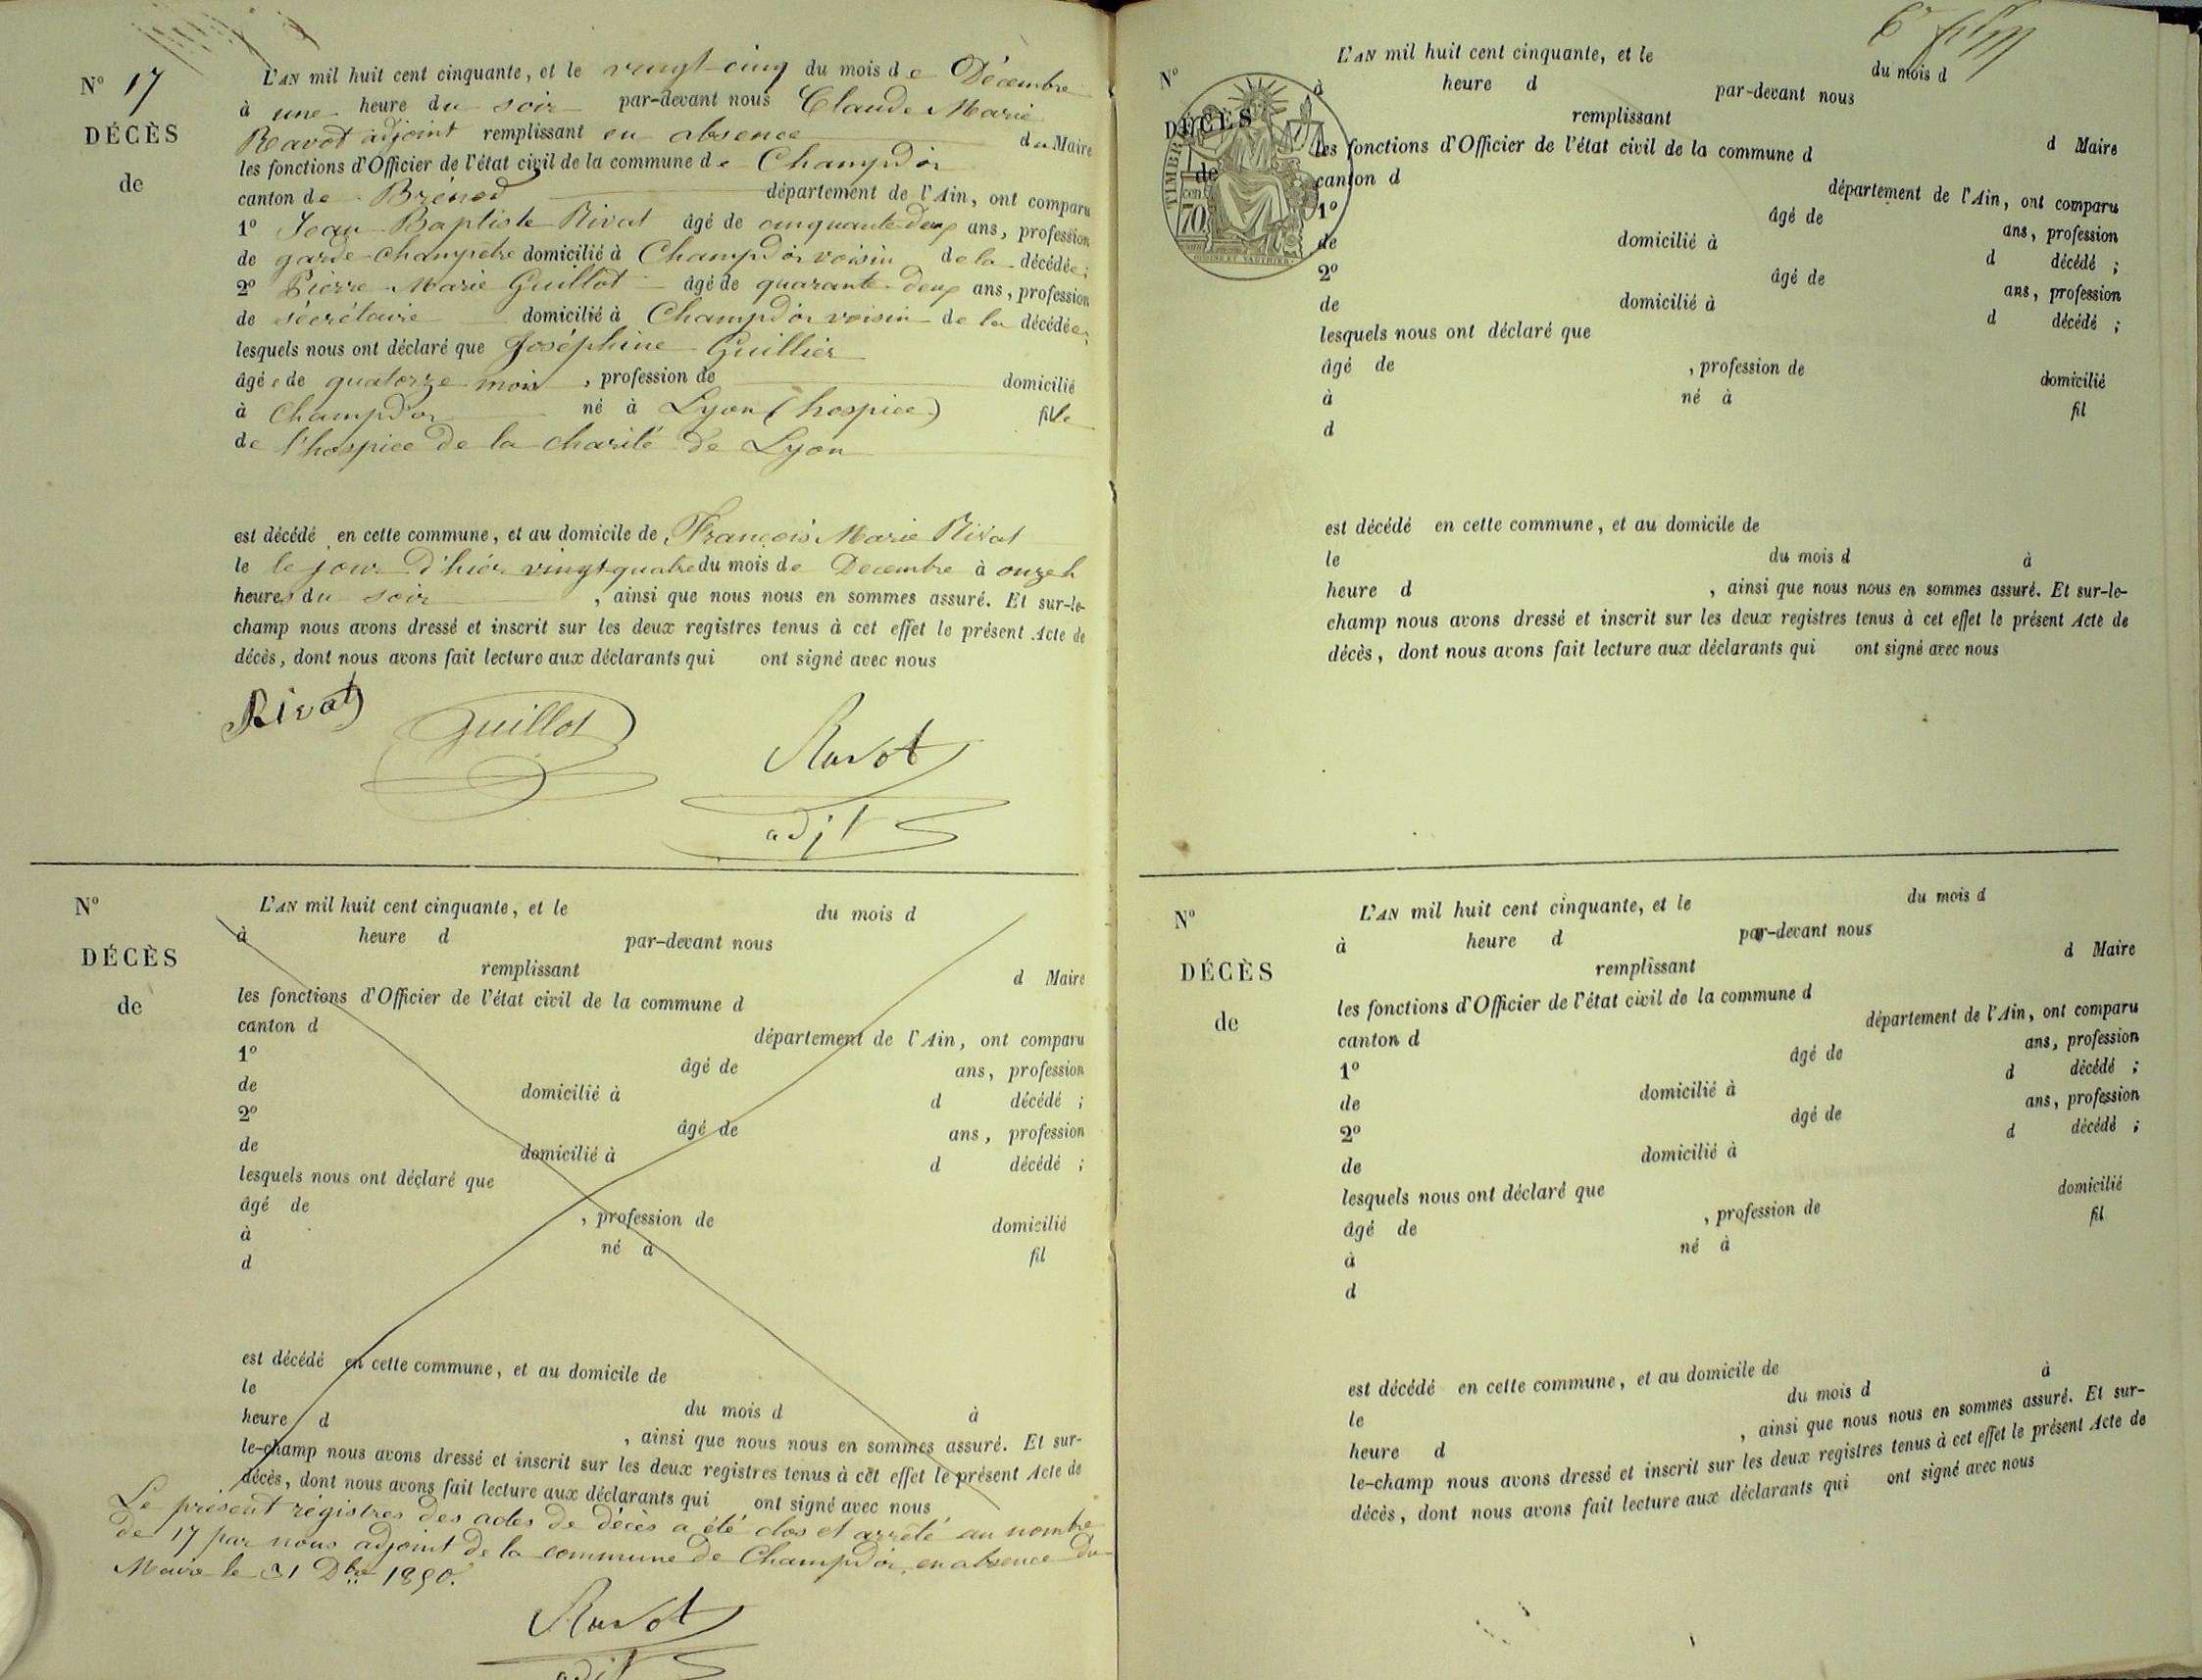 N° 17
DÉCÈS
de
L'AN mil huit cent cinquante, et le vingt-cinq du mois de Décembre
à une heure du soir par-devant nous Claude Marie
Ravot adjoint remplissant en absence du Maire
les fonctions d'Officier de l'état civil de la commune de Champdor
canton de Brénod département de l'Ain, ont comparu
1° Jean Baptiste Rivat âgé de cinquante deux ans, profession
de garde-champêtre domicilié à Champdor voisin de la décédée;
2° Pierre Marie Guillot âgé de quarante-deux ans, profession
de sécrétaire domicilié à Champdor voisin de la décédée;
lesquels nous ont déclaré que Joséphine Guillier
âgée de quatorze mois, profession de domicilié
à Champdor né à Lyon (hospice) fille
de l'hospice de la charité de Lyon
est décédé en cette commune, et au domicile de François Marie Rivat
le le jour d'hier vingt quatre du mois de Decembre à onze h
heures du soir, ainsi que nous nous en sommes assuré. Et sur-le-
champ nous avons dressé et inscrit sur les deux registres tenus à cet effet le présent Acte de
décès, dont nous avons fait lecture aux déclarants qui ont signé avec nous
Rivat
Guillot
Ravot
adjt
N°
DÉCÈS
de
L'AN mil huit cent cinquante, et le du mois d
à heure d par-devant nous
remplissant d Maire
les fonctions d'Officier de l'état civil de la commune d
canton d département de l'Ain, ont comparu
1° âgé de ans, profession
de domicilié à d décédé ;
2° âgé de ans, profession
de domicilié à d décédé ;
lesquels nous ont déclaré que
âgé de , profession de domicilié
à né à fil
d
est décédé en cette commune, et au domicile de
le du mois d à
heure d , ainsi que nous nous en sommes assuré. Et sur-
le-champ nous avons dressé et inscrit sur les deux registres tenus à cet effet le présent Acte de
décès, dont nous avons fait lecture aux déclarants qui ont signé avec nous
Le présent régistres des actes de décès a été clos et arrêté au nombre
de 17 par nous adjoint de la commune de Champdor, en absence du
Maire le 31 Dbre 1850.
Ravot
adjt
N°
DÉCÈS
de
TIMBRE
70
L'AN mil huit cent cinquante, et le du mois d
à heure d par-devant nous
remplissant d Maire
les fonctions d'Officier de l'état civil de la commune d
canton d département de l'Ain, ont comparu
1° âgé de ans, profession
de domicilié à d décédé ;
2° âgé de ans, profession
de domicilié à d décédé ;
lesquels nous ont déclaré que
âgé de , profession de domicilié
à né à fil
d
est décédé en cette commune, et au domicile de
le du mois d à
heure d , ainsi que nous nous en sommes assuré. Et sur-le-
champ nous avons dressé et inscrit sur les deux registres tenus à cet effet le présent Acte de
décès, dont nous avons fait lecture aux déclarants qui ont signé avec nous
N°
DÉCÈS
de
L'AN mil huit cent cinquante, et le du mois d
à heure d par-devant nous
remplissant d Maire
les fonctions d'Officier de l'état civil de la commune d
canton d département de l'Ain, ont comparu
1° âgé de ans, profession
de domicilié à d décédé ;
2° âgé de ans, profession
de domicilié à d décédé ;
lesquels nous ont déclaré que
âgé de , profession de domicilié
à né à fil
d
est décédé en cette commune, et au domicile de
le du mois d à
heure d , ainsi que nous nous en sommes assuré. Et sur-
le-champ nous avons dressé et inscrit sur les deux registres tenus à cet effet le présent Acte de
décès, dont nous avons fait lecture aux déclarants qui ont signé avec nous